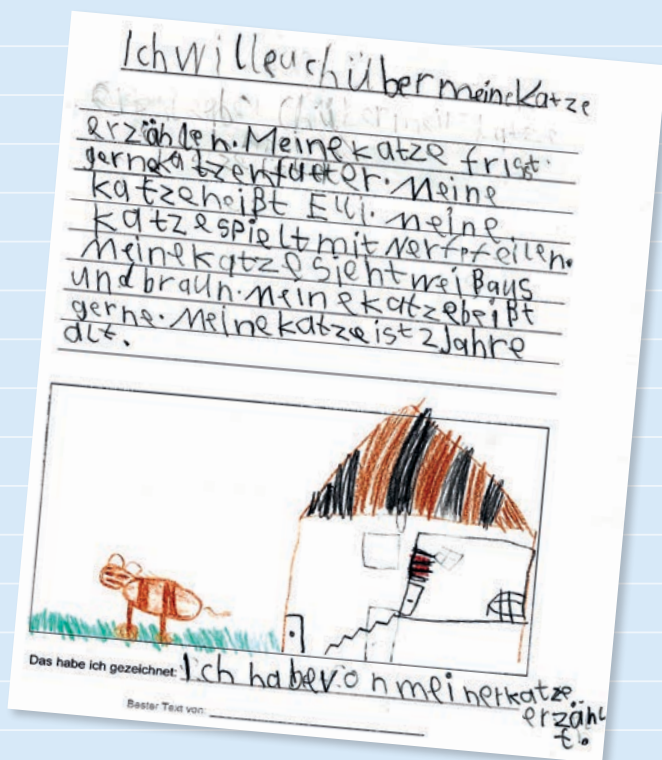 Ich will euch über meine Katze
erzählen. Meine katze frisst
gerne katzenfutter. Meine
katze heißt Elli. meine
katze spielt mit Nerfpfeilen.
Meine katze sieht weiß aus
und braun. Meine katze beißt
gerne. Meine katze ist 2 Jahre
alt.
Das habe ich gezeichnet: Ich habe von meiner katze
erzähl
t.
Bester Text von: